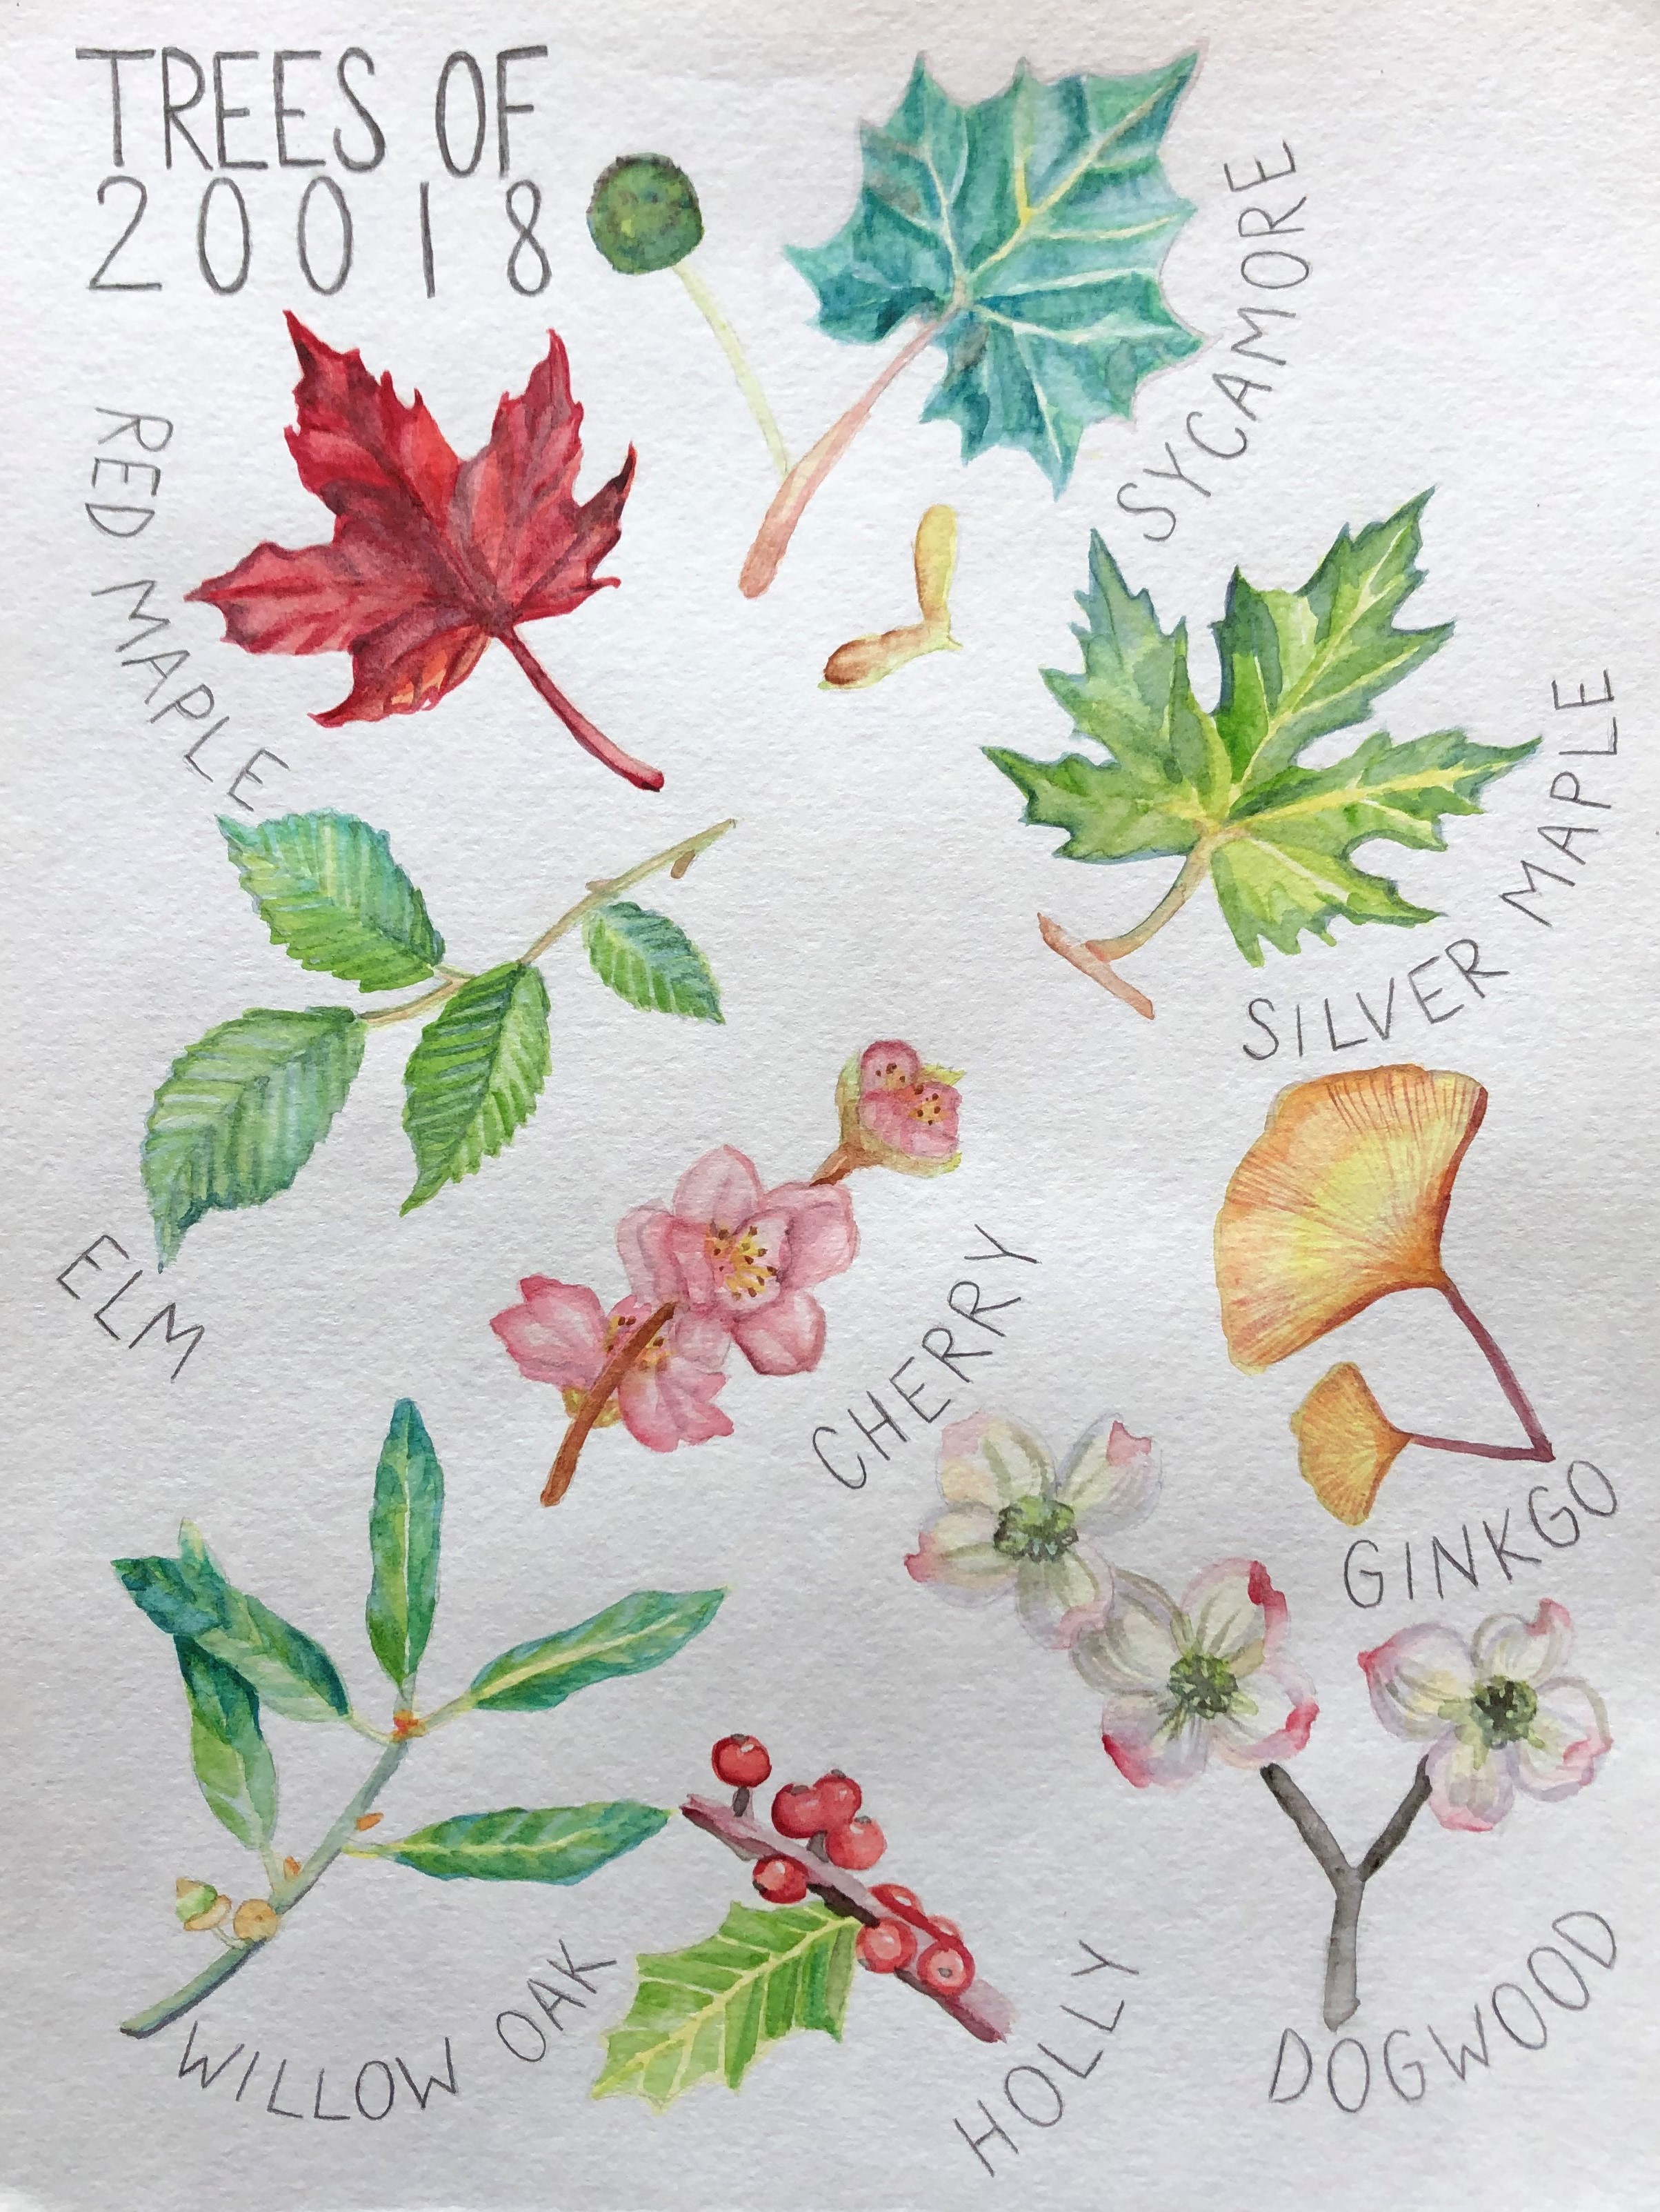 TREES OF
20018
SYCAMORE
RED MAPLE
SILVER MAPLE
ELM
CHERRY
GINKGO
WILLOW OAK
HOLLY
DOGWOOD